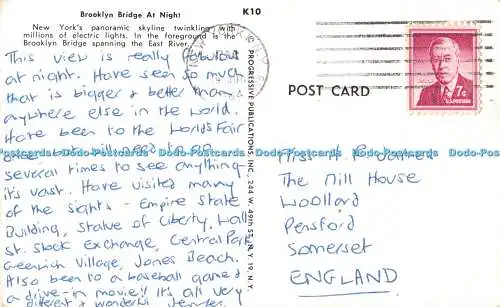 Brooklyn Bridge At Night
K10
New York's panoramic skyline twinkling with
millions of electric lights. In the foreground is the
Brooklyn Bridge spanning the East River.
This view is really fabulous
at night. Have seen so much
that is bigger & better than
anywhere else in the world.
Have been to the World's Fair
once but will need to go
several times to see anything
it's vast. Have visited many
of the sights - Empire State
Building, Statue of Liberty, Wall
St. Stock Exchange, Central Park
Greenwich Village, Jones Beach.
Also been to a baseball game &
a drive-in movie! It's all very
different & wonderful
PROGRESSIVE PUBLICATIONS, INC., 244 W. 49th ST., N. Y. 19, N. Y.
POST CARD
7¢
U.S. POSTAGE
Dodo-Postcards Dodo-Postcards Dodo-Postcards Dodo-Postcards Dodo-Postcards
Miss
The Mill House
Woollard
Pensford
Somerset
ENGLAND